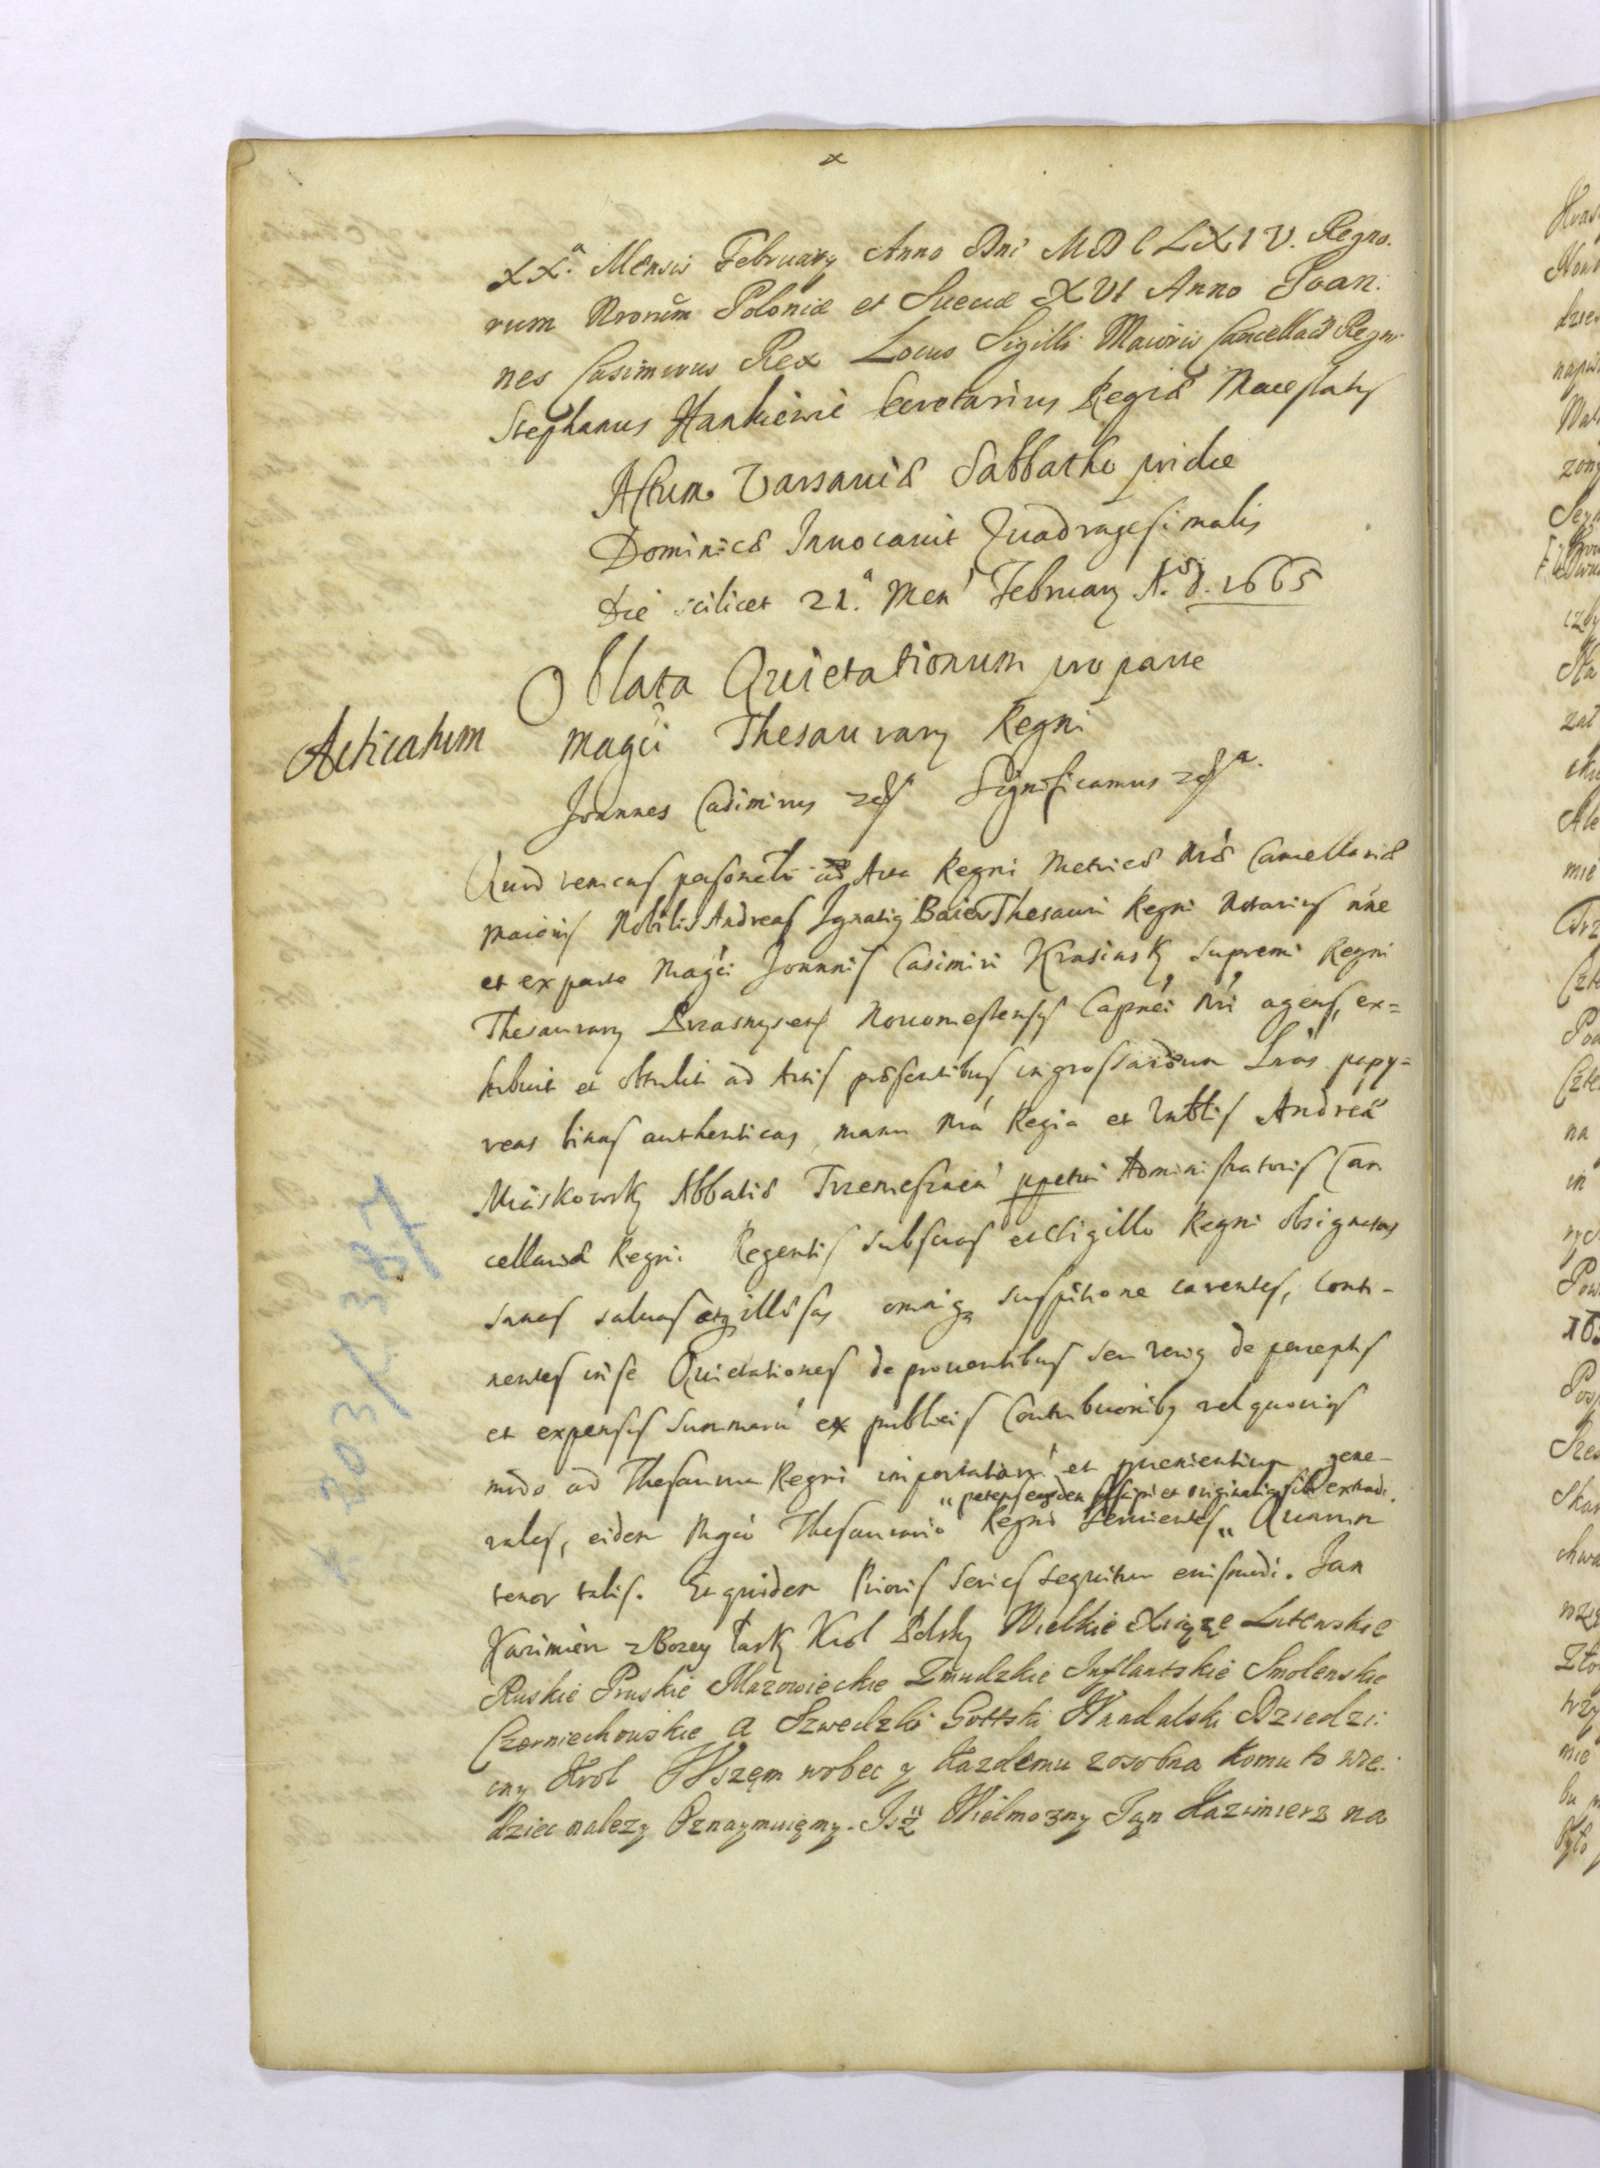 x
XX.ª Mensis Februarÿ Anno Dni MDCLXIV. Regno.
rum Nrorum Poloniæ et Sueciæ XVI Anno Joan:
nes Casimirus Rex Locus Sigilli Maioris Cancellariæ Regni
Stephanus Hankiewic Secretarius Regiæ Maiestatis
Actum Varsaviæ Sabbatho pridie
Dominicæ Invocavit Quadragesimalis
die scilicet 21.ª Men Februarÿ A. d. 1665
Oblata Quietationum pro parte
Acticatum
Magci Thesaurarÿ Regni
Joannes Casimirus Significamus
Quod veniens personalr ad Acta Regni Metrices Nræ Cancellariæ
Maioris Nobilis Andreas Ignatiq Baier Thesauri Regni Notarius nõe
et ex parte Magci Joannis Casimiri Krasinskÿ Supremi Regni
Thesaurarÿ Przasnysens Novomestensis Capnei Nri agens, ex=
hibuit et obtulit ad Actis præsentibus ingrossandum Lras papy=
reas binas authenticas, manu Nra Regia et Vnblis Andreæ
Miaskowskÿ Abbatis Trzemesznen ppetui Administratoris Can
cellariæ Regni Regentis subscras et Sigillo Regni obsignatas
sanas salvas etq illæsas omniq suspitione carentes, conti-
nentes in se Quietationes de proventibus seu veriq de perceptis
et expensis Summarũ ex publicis Contributionibq vel quovis
modo ad Thesaurum Regni importatarũ et provenientium gene-
„ petens easdem suscipi et originaliq sibi extradi.
rales, eidem Mgco Thesaurario Regni servientes „ Quarum
tenor talis. Et quidem Prioris series sequitur eiusmodi. Jan
Kazimierz z Bozey łaskÿ Krol Polskÿ Wielkie Xiąze Litewskie
Ruskie Pruskie Mazowieckie Zmudzkie Inflantskie Smolenskie
Czerniechowskie a Szwedzki Gottski Wandalski Dziedzi:
czny Krol Wszem wobec y kazdemu zosobna komu to wie:
dziec nalezy Oznaymuięmy. Isz Wielmozny Jan Kazimierz na
x 303/387